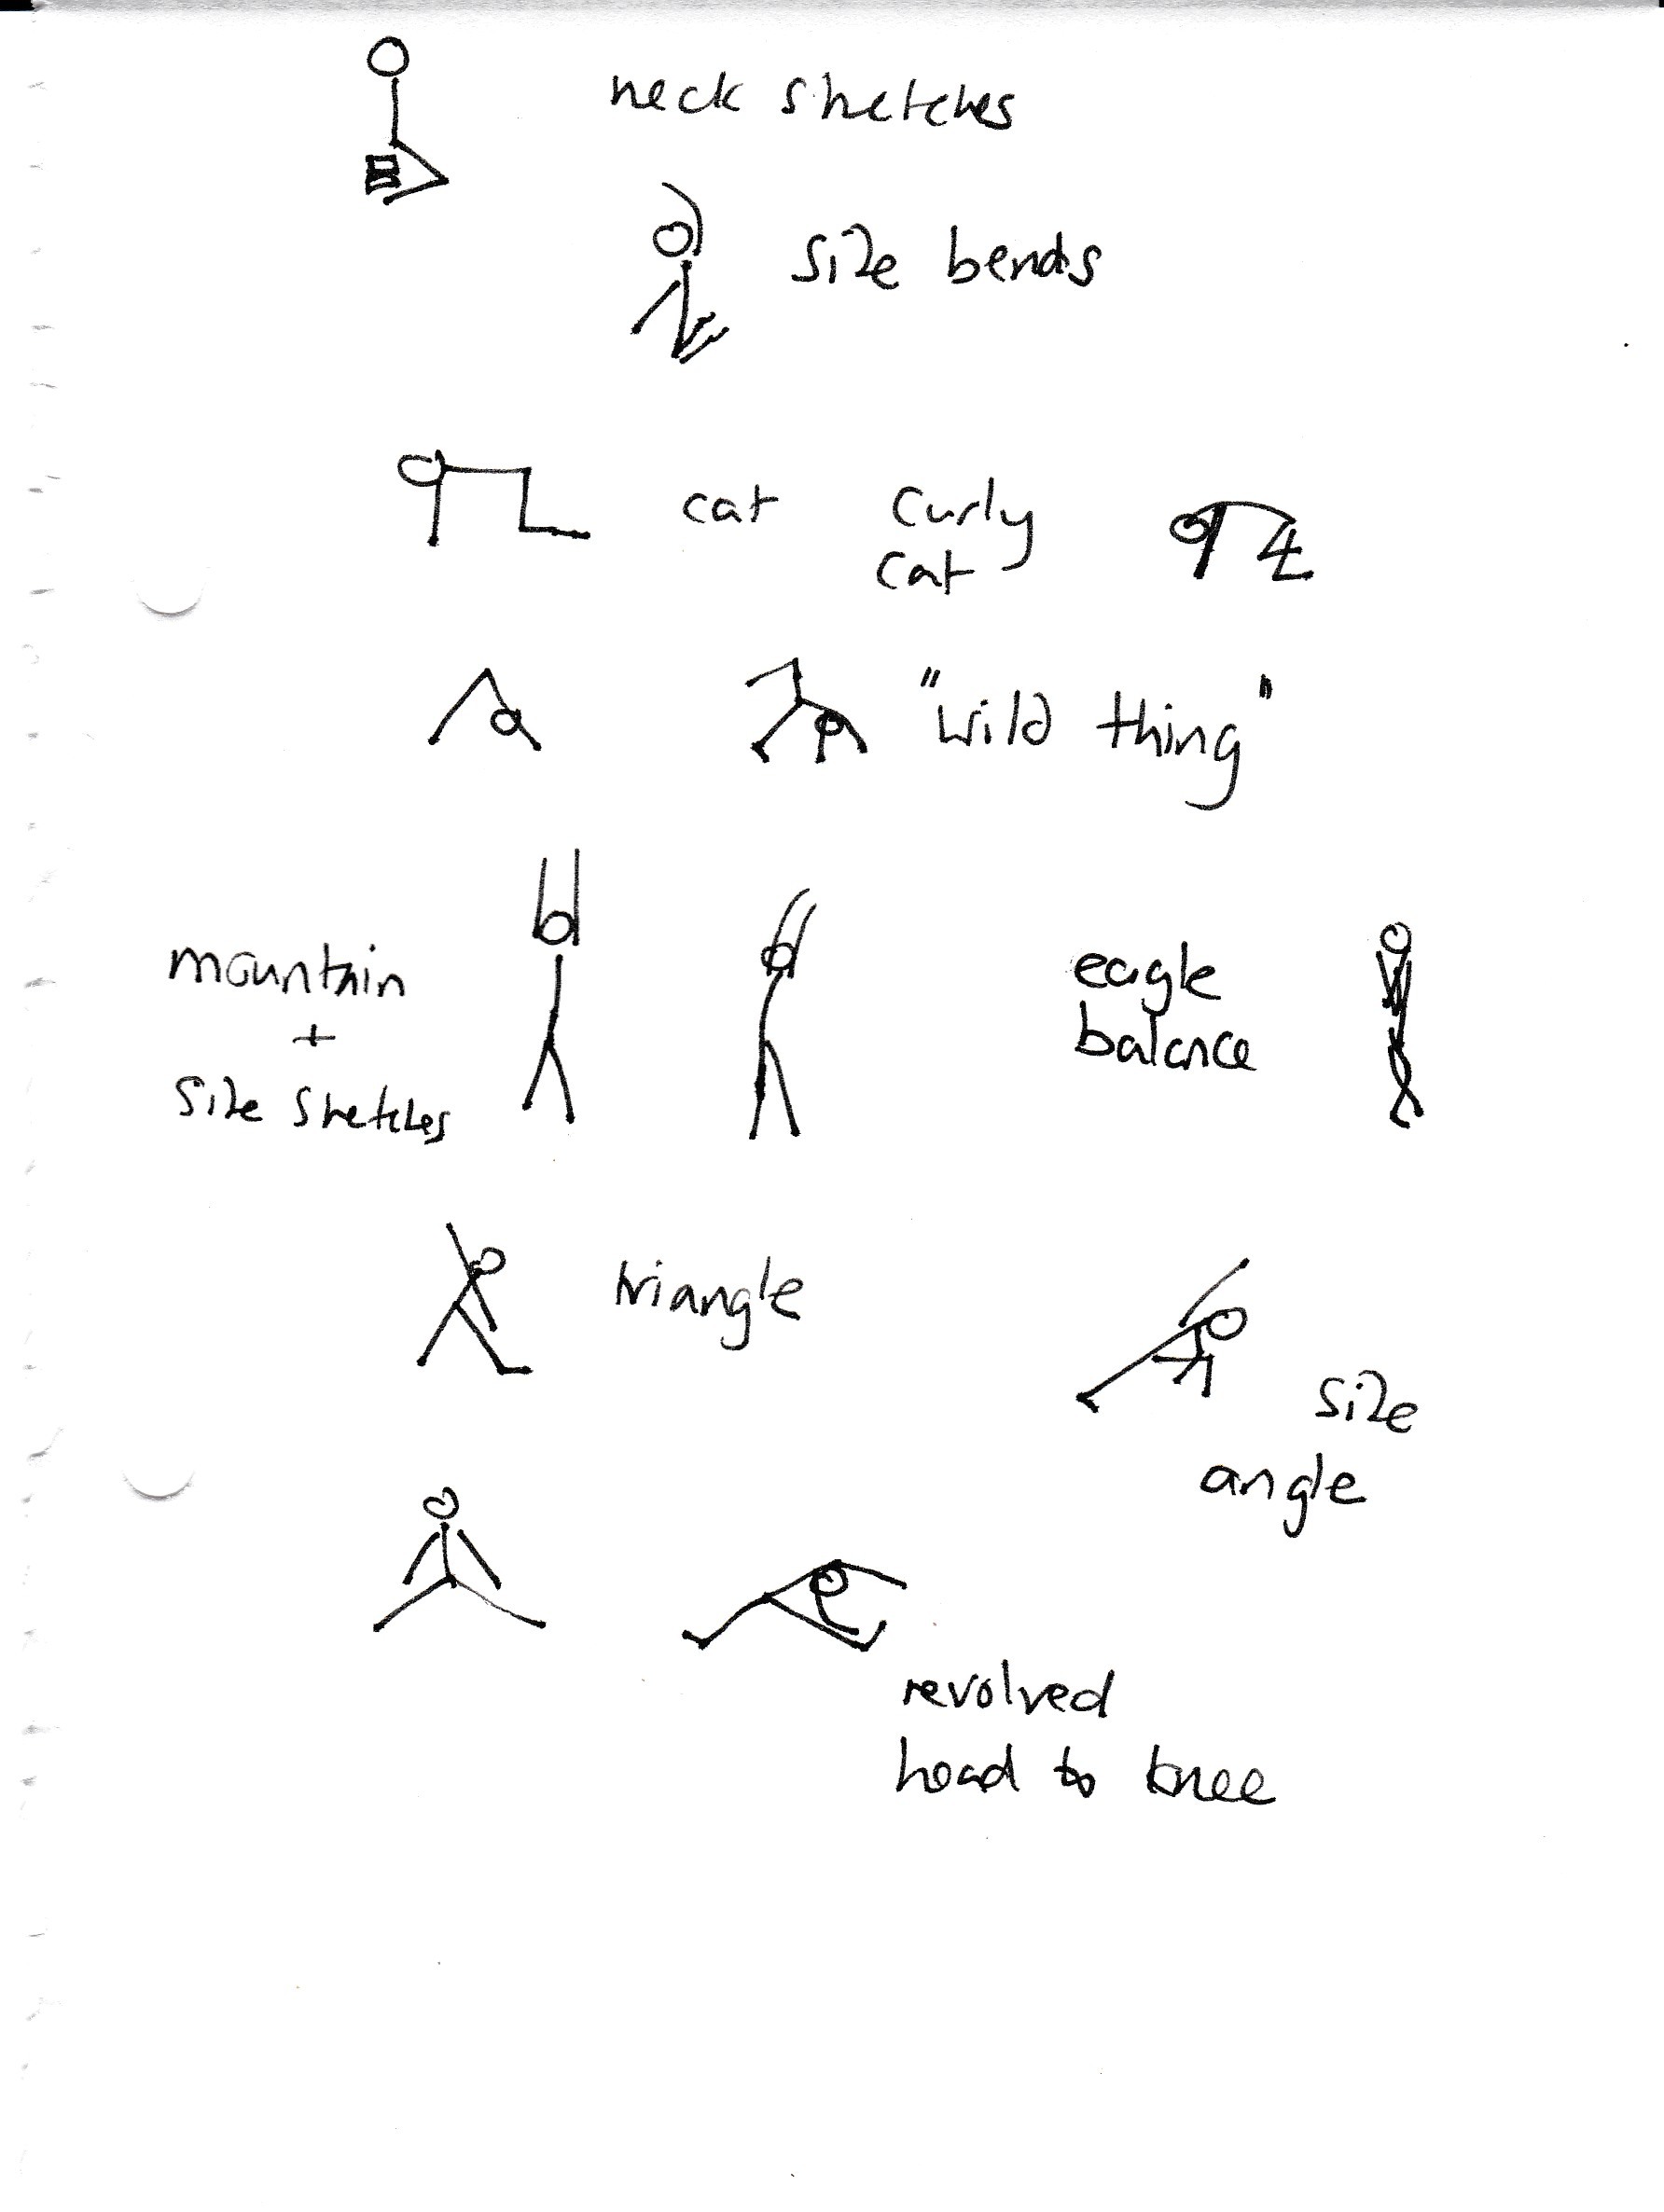 neck stretches
side bends
cat
curly
cat
"wild thing"
mountain
+
side stretches
eagle
balance
triangle
side
angle
revolved
head to knee